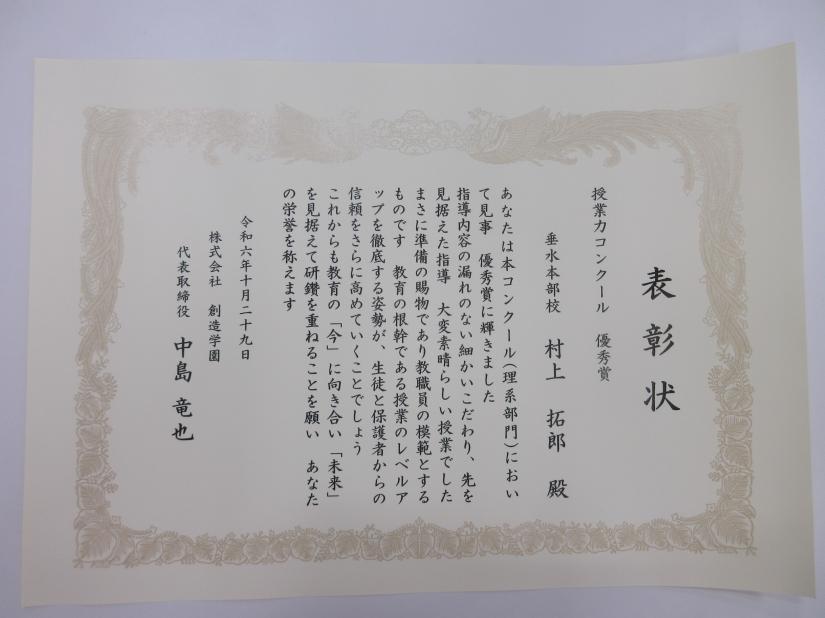 表彰状
授業力コンクール 優秀賞
垂水本部校 村上 拓郎 殿
あなたは本コンクール(理系部門)におい
て見事 優秀賞に輝きました
指導内容の漏れのない細かいこだわり、先を
見据えた指導 大変素晴らしい授業でした
まさに準備の賜物であり教職員の模範とする
ものです 教育の根幹である授業のレベルア
ップを徹底する姿勢が、生徒と保護者からの
信頼をさらに高めていくことでしょう
これからも教育の「今」に向き合い「未来」
を見据えて研鑽を重ねることを願い あなた
の栄誉を称えます
令和六年十月二十九日
株式会社 創造学園
代表取締役 中島 竜也